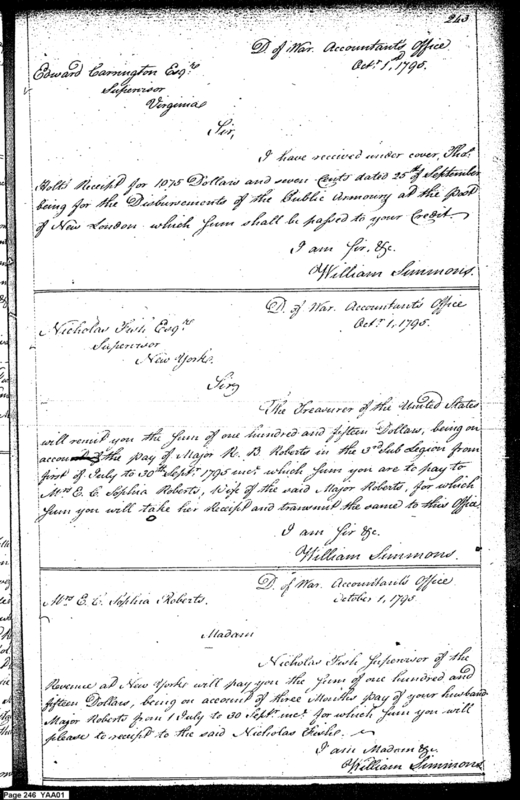 243
D. of War. Accountant's Office
Oct.r 1.st 1795.
Edward Carrington Esq.r
Supervisor
Virginia
Sir,
I have received under cover, Tho.s
Holt's Receipt for 1075 Dollars and seven Cents dated 25th of September
being for the Disbursements of the Public Armoury at the post
of New London which Sum shall be passed to your Credit.
I am Sir, &c.
William Simmons.
D. of War. Accountant's Office
Oct.r 1, 1795.
Nicholas Fish Esq.r
Supervisor
New York.
Sir
The Treasurer of the United States
will remit you the Sum of one hundred and fifteen Dollars, being on
account of the pay of Major R. B Roberts in the 3d Sub Legion from
first of July to 30th Sept.r 1795 inc.e which Sum you are to pay to
Mrs E. C. Sophia Roberts, Wife of the said Major Roberts, for which
Sum you will take her Receipt and transmit the same to this Office.
I am Sir &c.
William Simmons.
D. of War. Accountant's Office
October 1, 1795.
Mrs E. C. Sophia Roberts.
Madam
Nicholas Fish Supervisor of the
Revenue at New York will pay you the Sum of one hundred and
fifteen Dollars, being on account of three Months pay of your husband
Major Roberts from 1 July to 30 Sept.r inc.e for which Sum you will
please to receipt to the said Nicholas Fish.
I am Madam &c.
William Simmons.
Page 246 YAA01